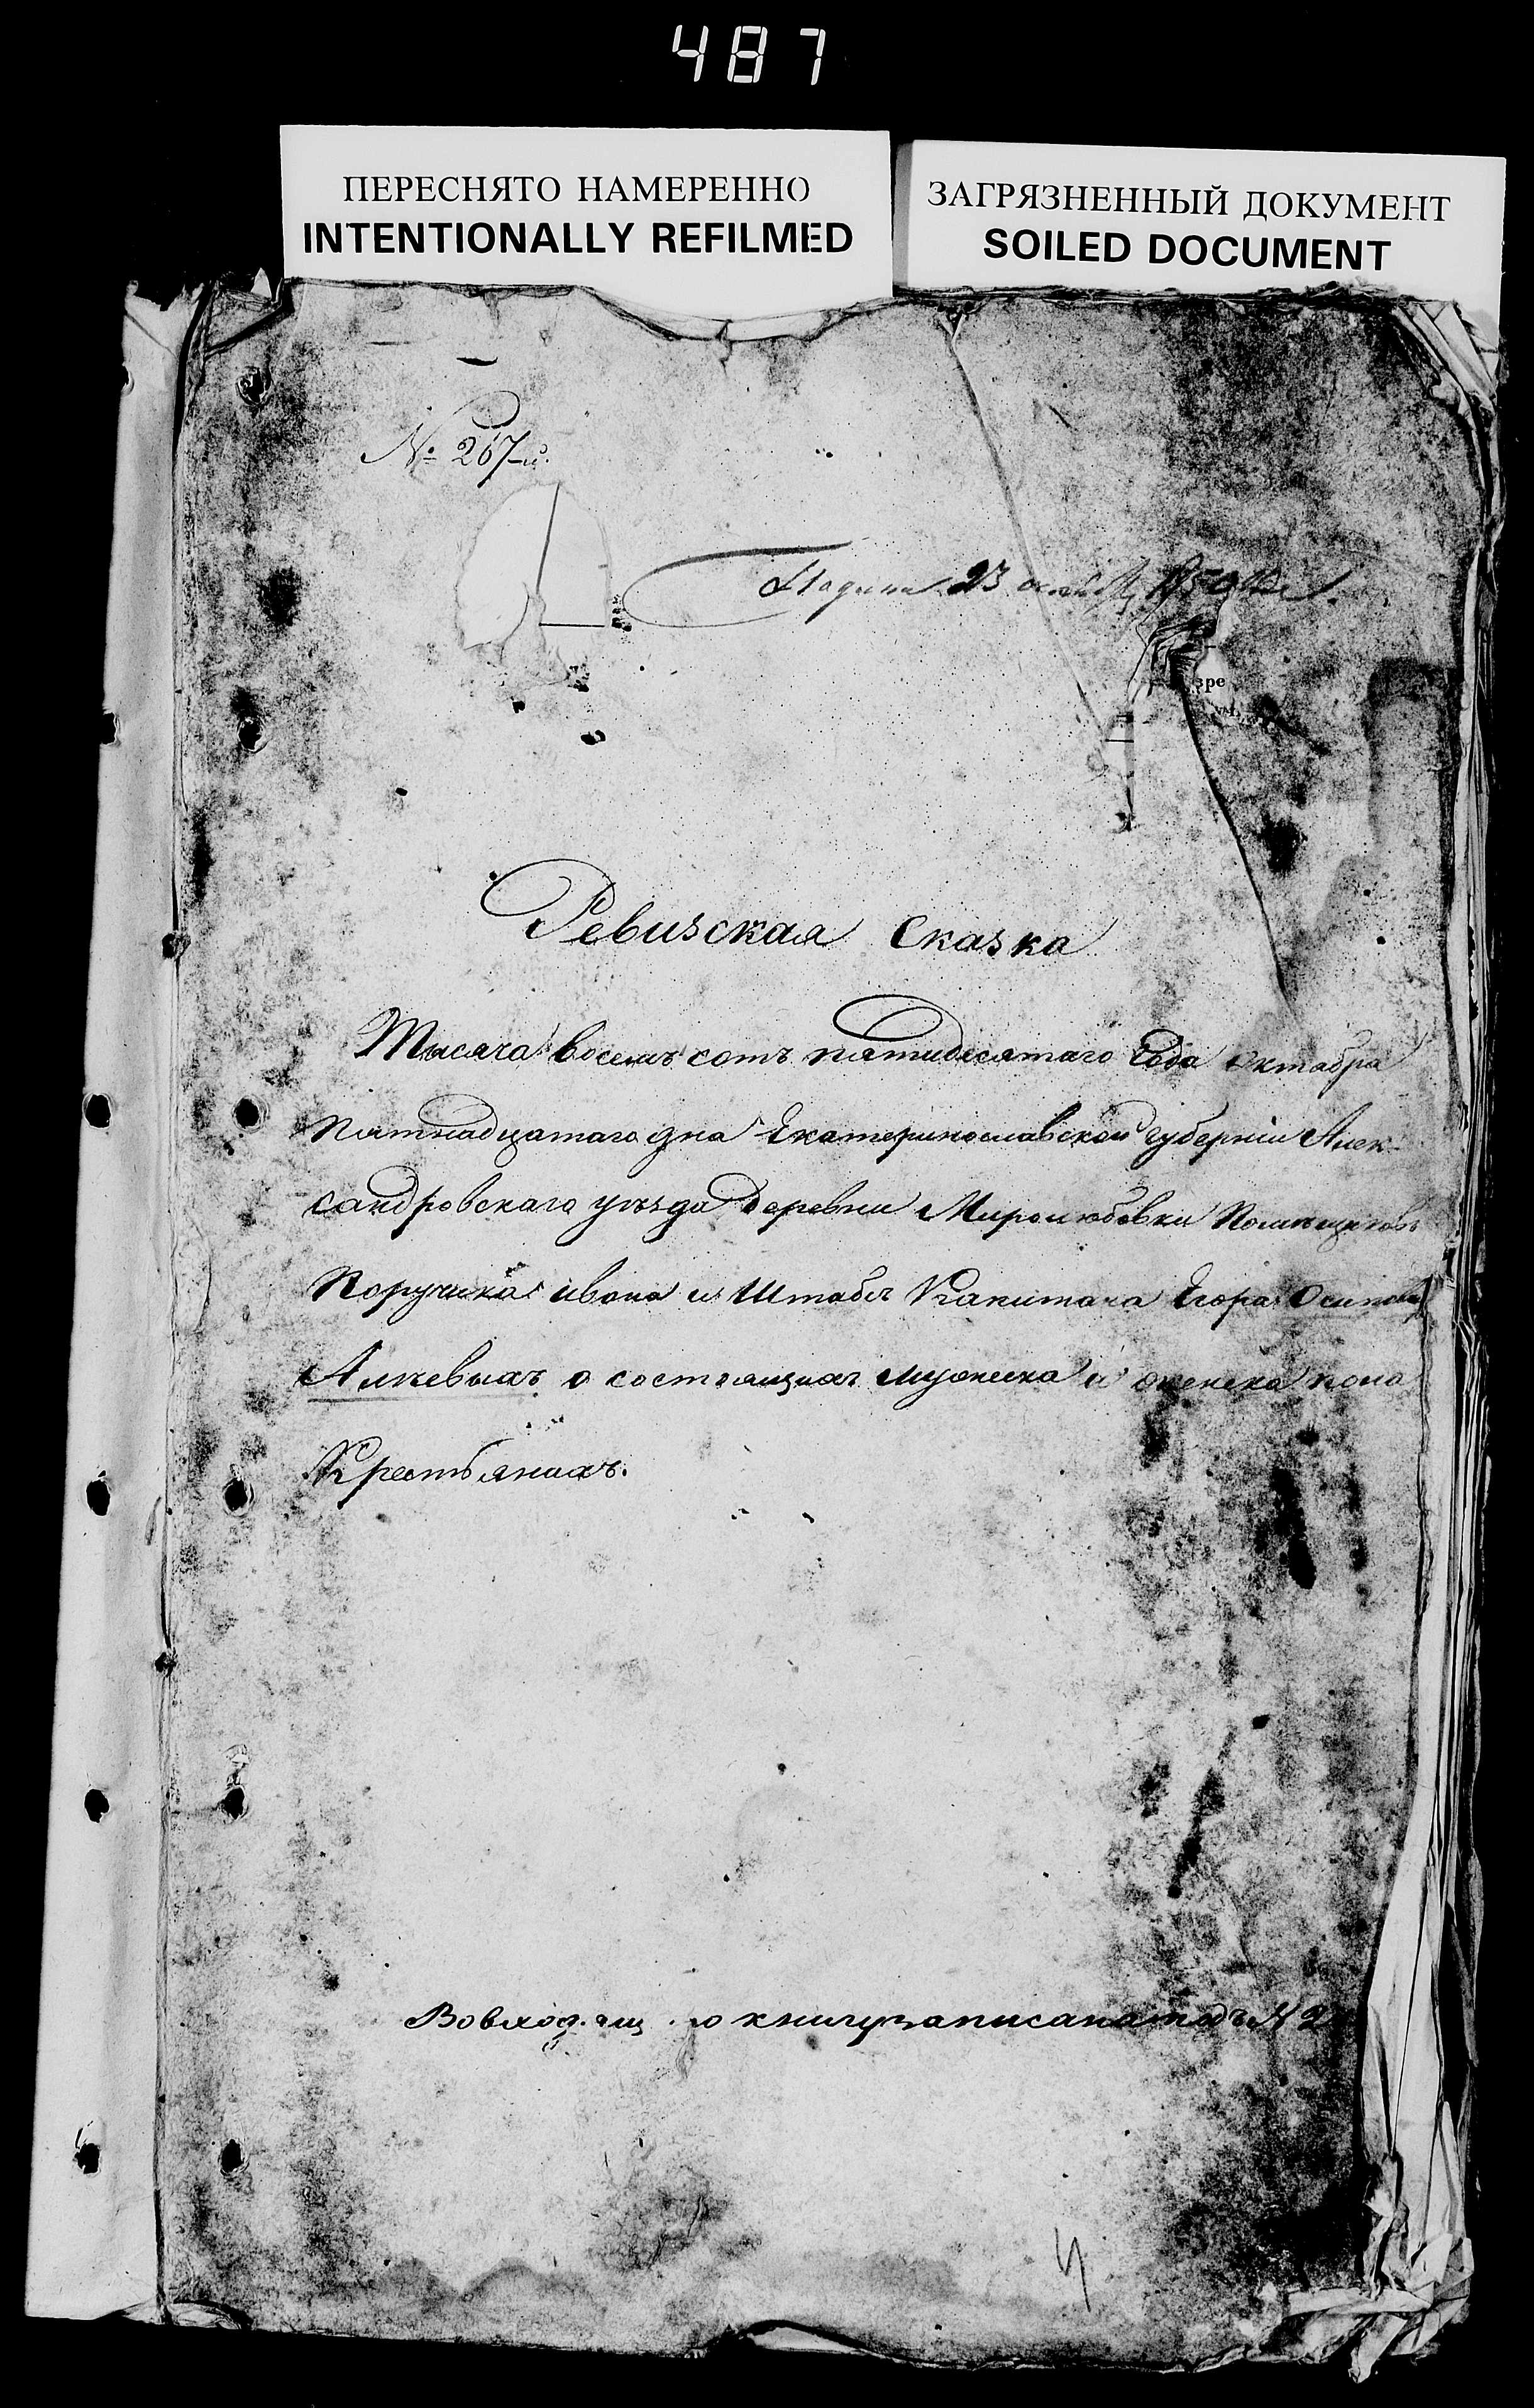 487
ПЕРЕСНЯТО НАМЕРЕННО
INTENTIONALLY REFILMED
ЗАГРЯЗНЕННЫЙ ДОКУМЕНТ
SOILED DOCUMENT
№ 267-й.
Подана 23 1850 года
зре
Ревизская Сказка
Тысяча восемь сотъ пятидесятаго Года Октабра
пятнадцатаго дна Екатеринославской Губерніи Алек-
сандровскаго уѣзда деревни Миролюбовки Помѣщиковъ
Поручика Ивана и Штабсъ Капитана Егора Осиповыхъ
Алчевыхъ о состоящихъ мужеска и женска пола
Крестьянахъ.
книгу записана подъ № 2
4